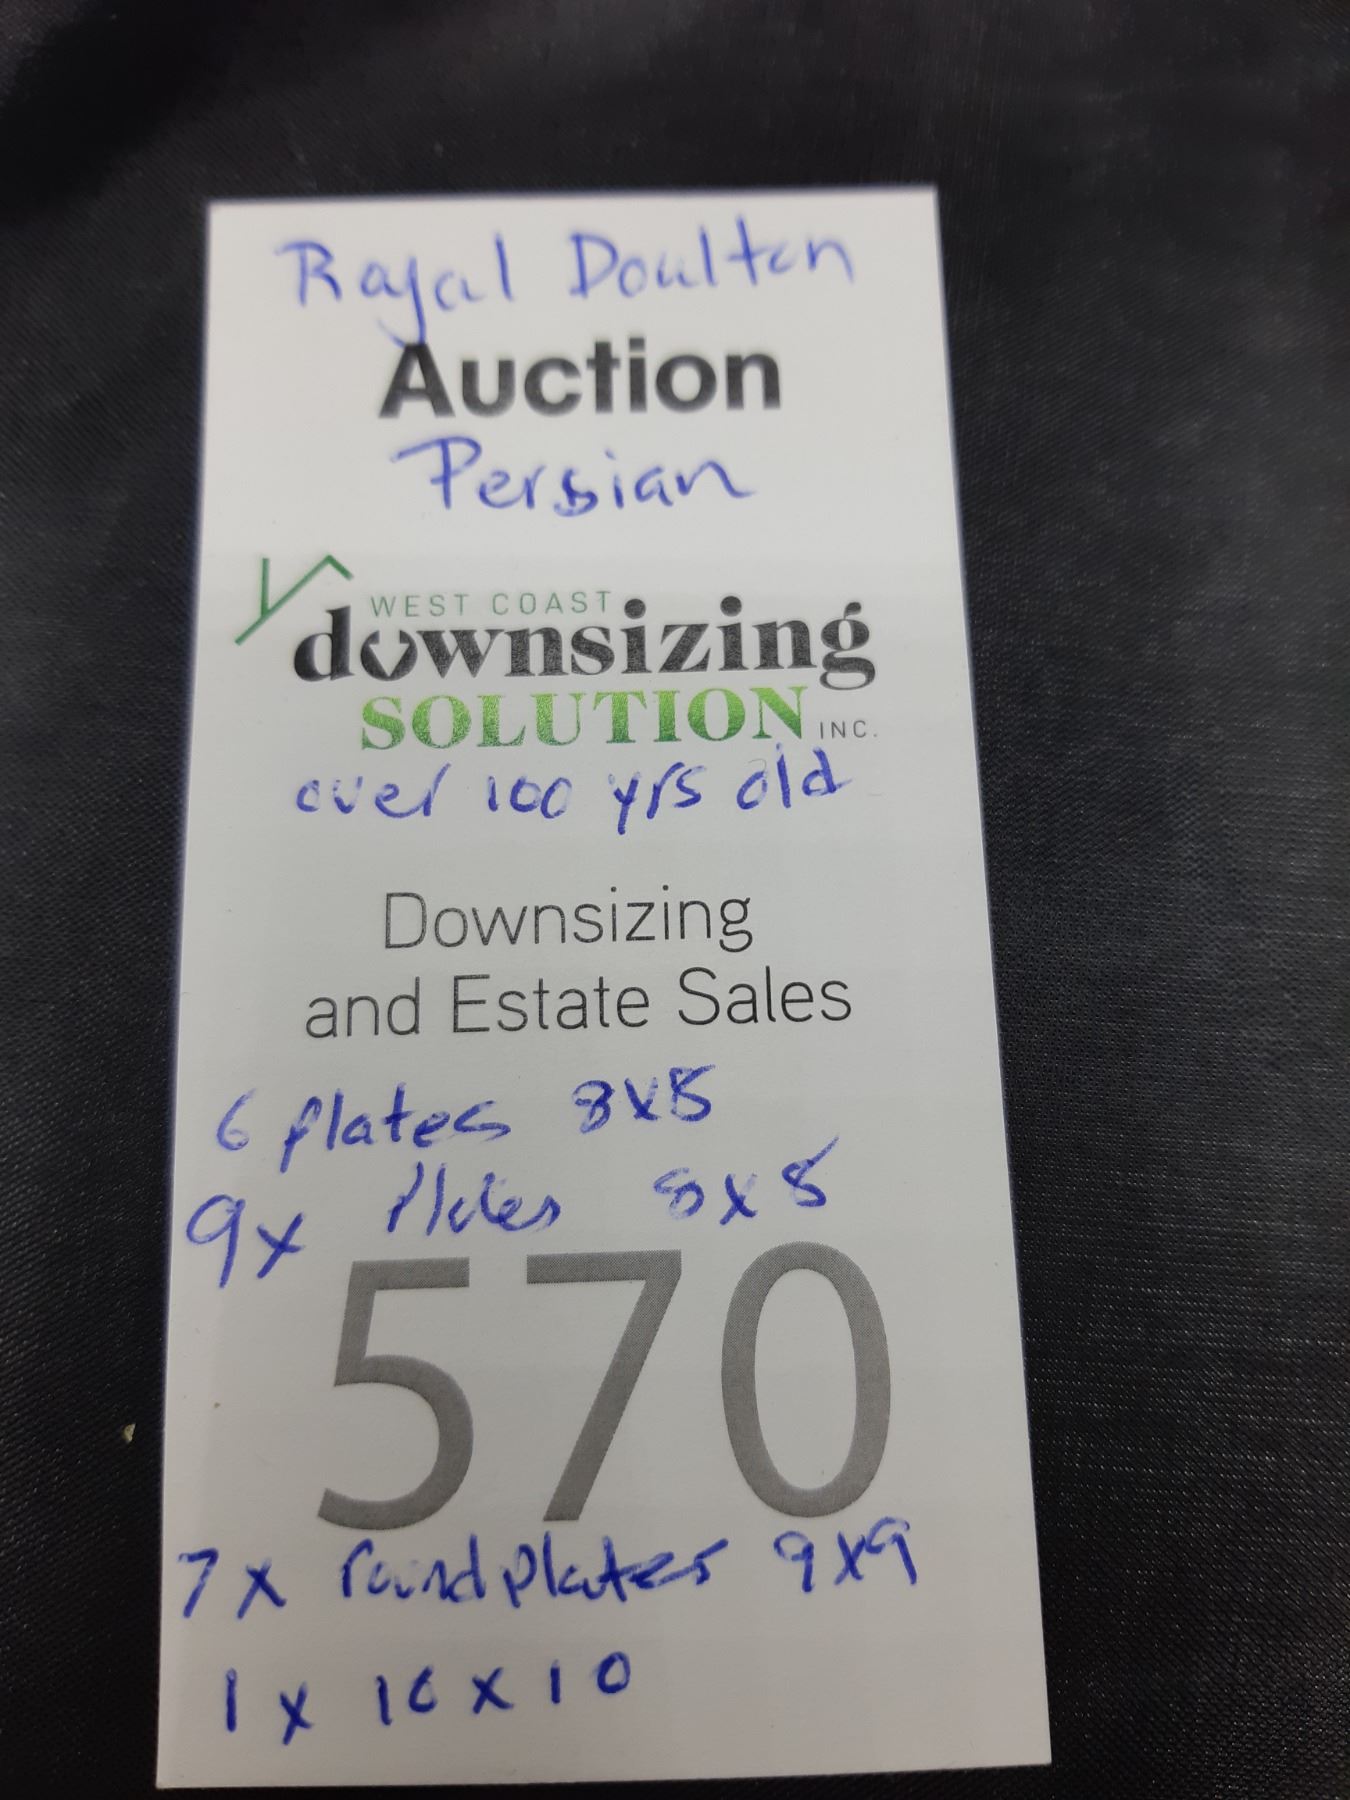 Royal Doulton
Auction
Persian
WEST COAST
downsizing
SOLUTION INC.
over 100 yrs old
Downsizing
and Estate Sales
6 plates 8x5
9x Plates 8x8
570
7x round plates 9x9
1x 10x10